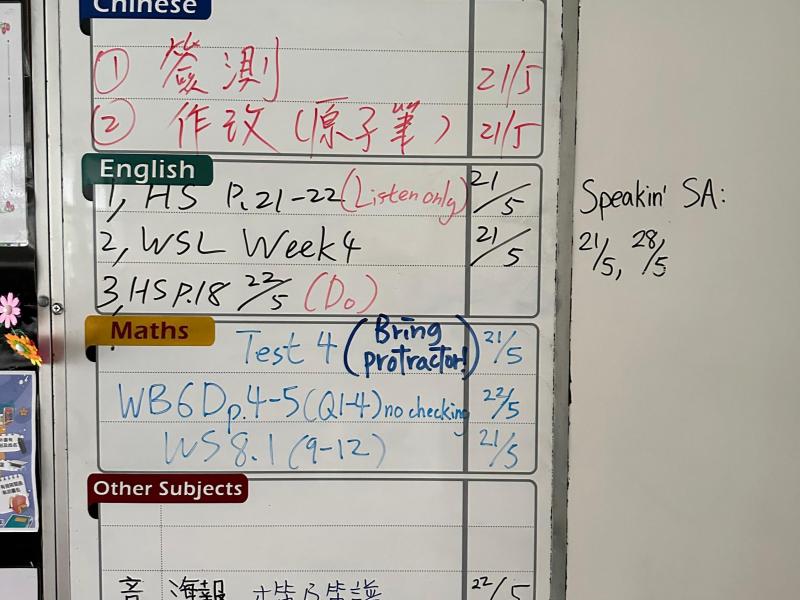 Chinese
① 簽測 21/5
② 作改(原子筆) 21/5
English
1, HS P.21-22 (Listen only) 21/5
2, WSL Week 4 21/5
3, HS P.18 22/5 (Do)
Speakin' SA:
21/5, 28/5
Maths
Test 4 (Bring protractor!) 21/5
WB6D p.4-5 (Q1-4) no checking 22/5
WS 8.1 (9-12) 21/5
Other Subjects
音 海報 22/5